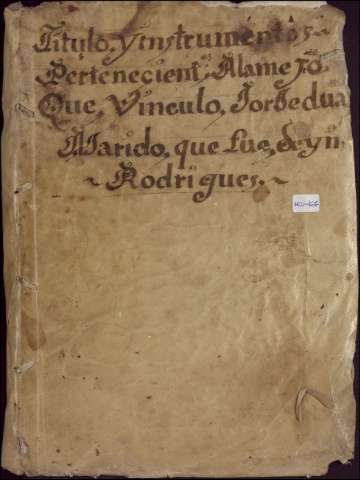 Titulo, y instrumentos~
Pertenecient. Alamejo.
Que, Vinculo, Jorge dua
Marido, que fue, de yn.
~ Rodrigues. ~